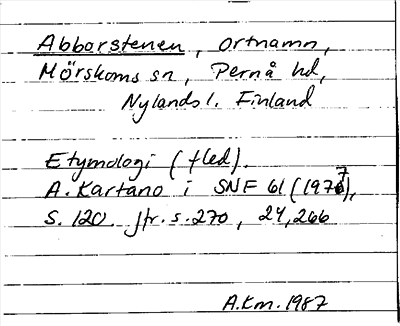 Abborstenen, ortnamn,
Mörskoms sn, Pernå hd,
Nylands l. Finland
Etymologi (fled).
A. Kartano i SNF 61 (1977),
s. 120. Jfr. s. 270, 24, 266
A.Km. 1987